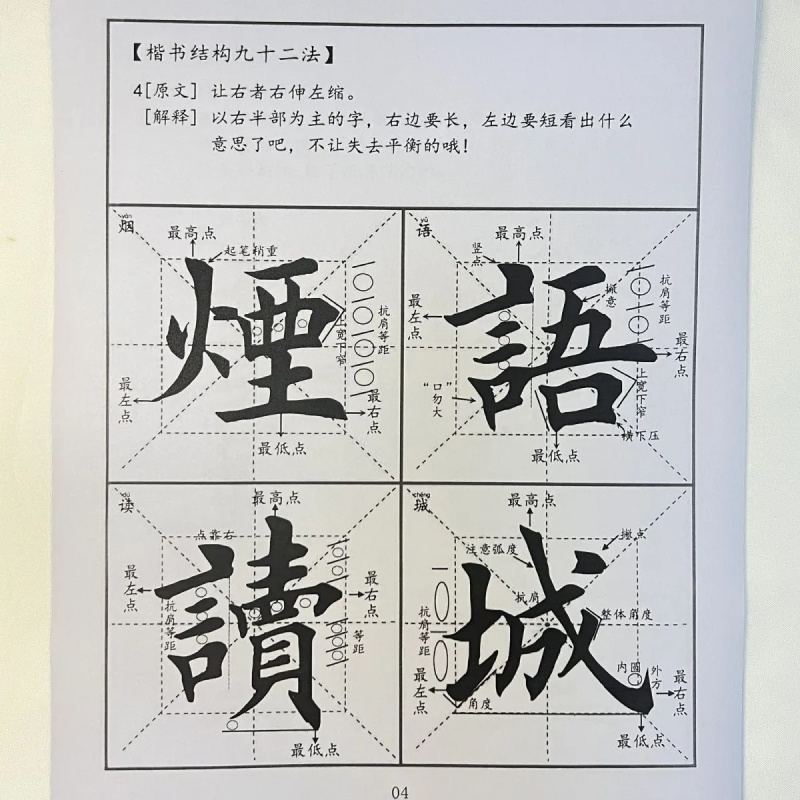 【楷书结构九十二法】
4[原文] 让右者右伸左缩。
[解释] 以右半部为主的字，右边要长，左边要短看出什么
意思了吧，不让失去平衡的哦！
yān
烟
最高点
起笔稍重
煙
上宽下窄
抗肩等距
最左点
最右点
最低点
yǔ
语
最高点
竖点
撇意
抗肩等距
最左点
語
最右点
“口”勿大
上宽下窄
横下压
最低点
dú
读
最高点
点靠右
最左点
讀
最右点
抗肩等距
等距
最低点
chéng
城
最高点
撇点
注意弧度
抗肩
城
整体角度
抗肩等距
内圆
外方
最左点
最右点
角度
最低点
04